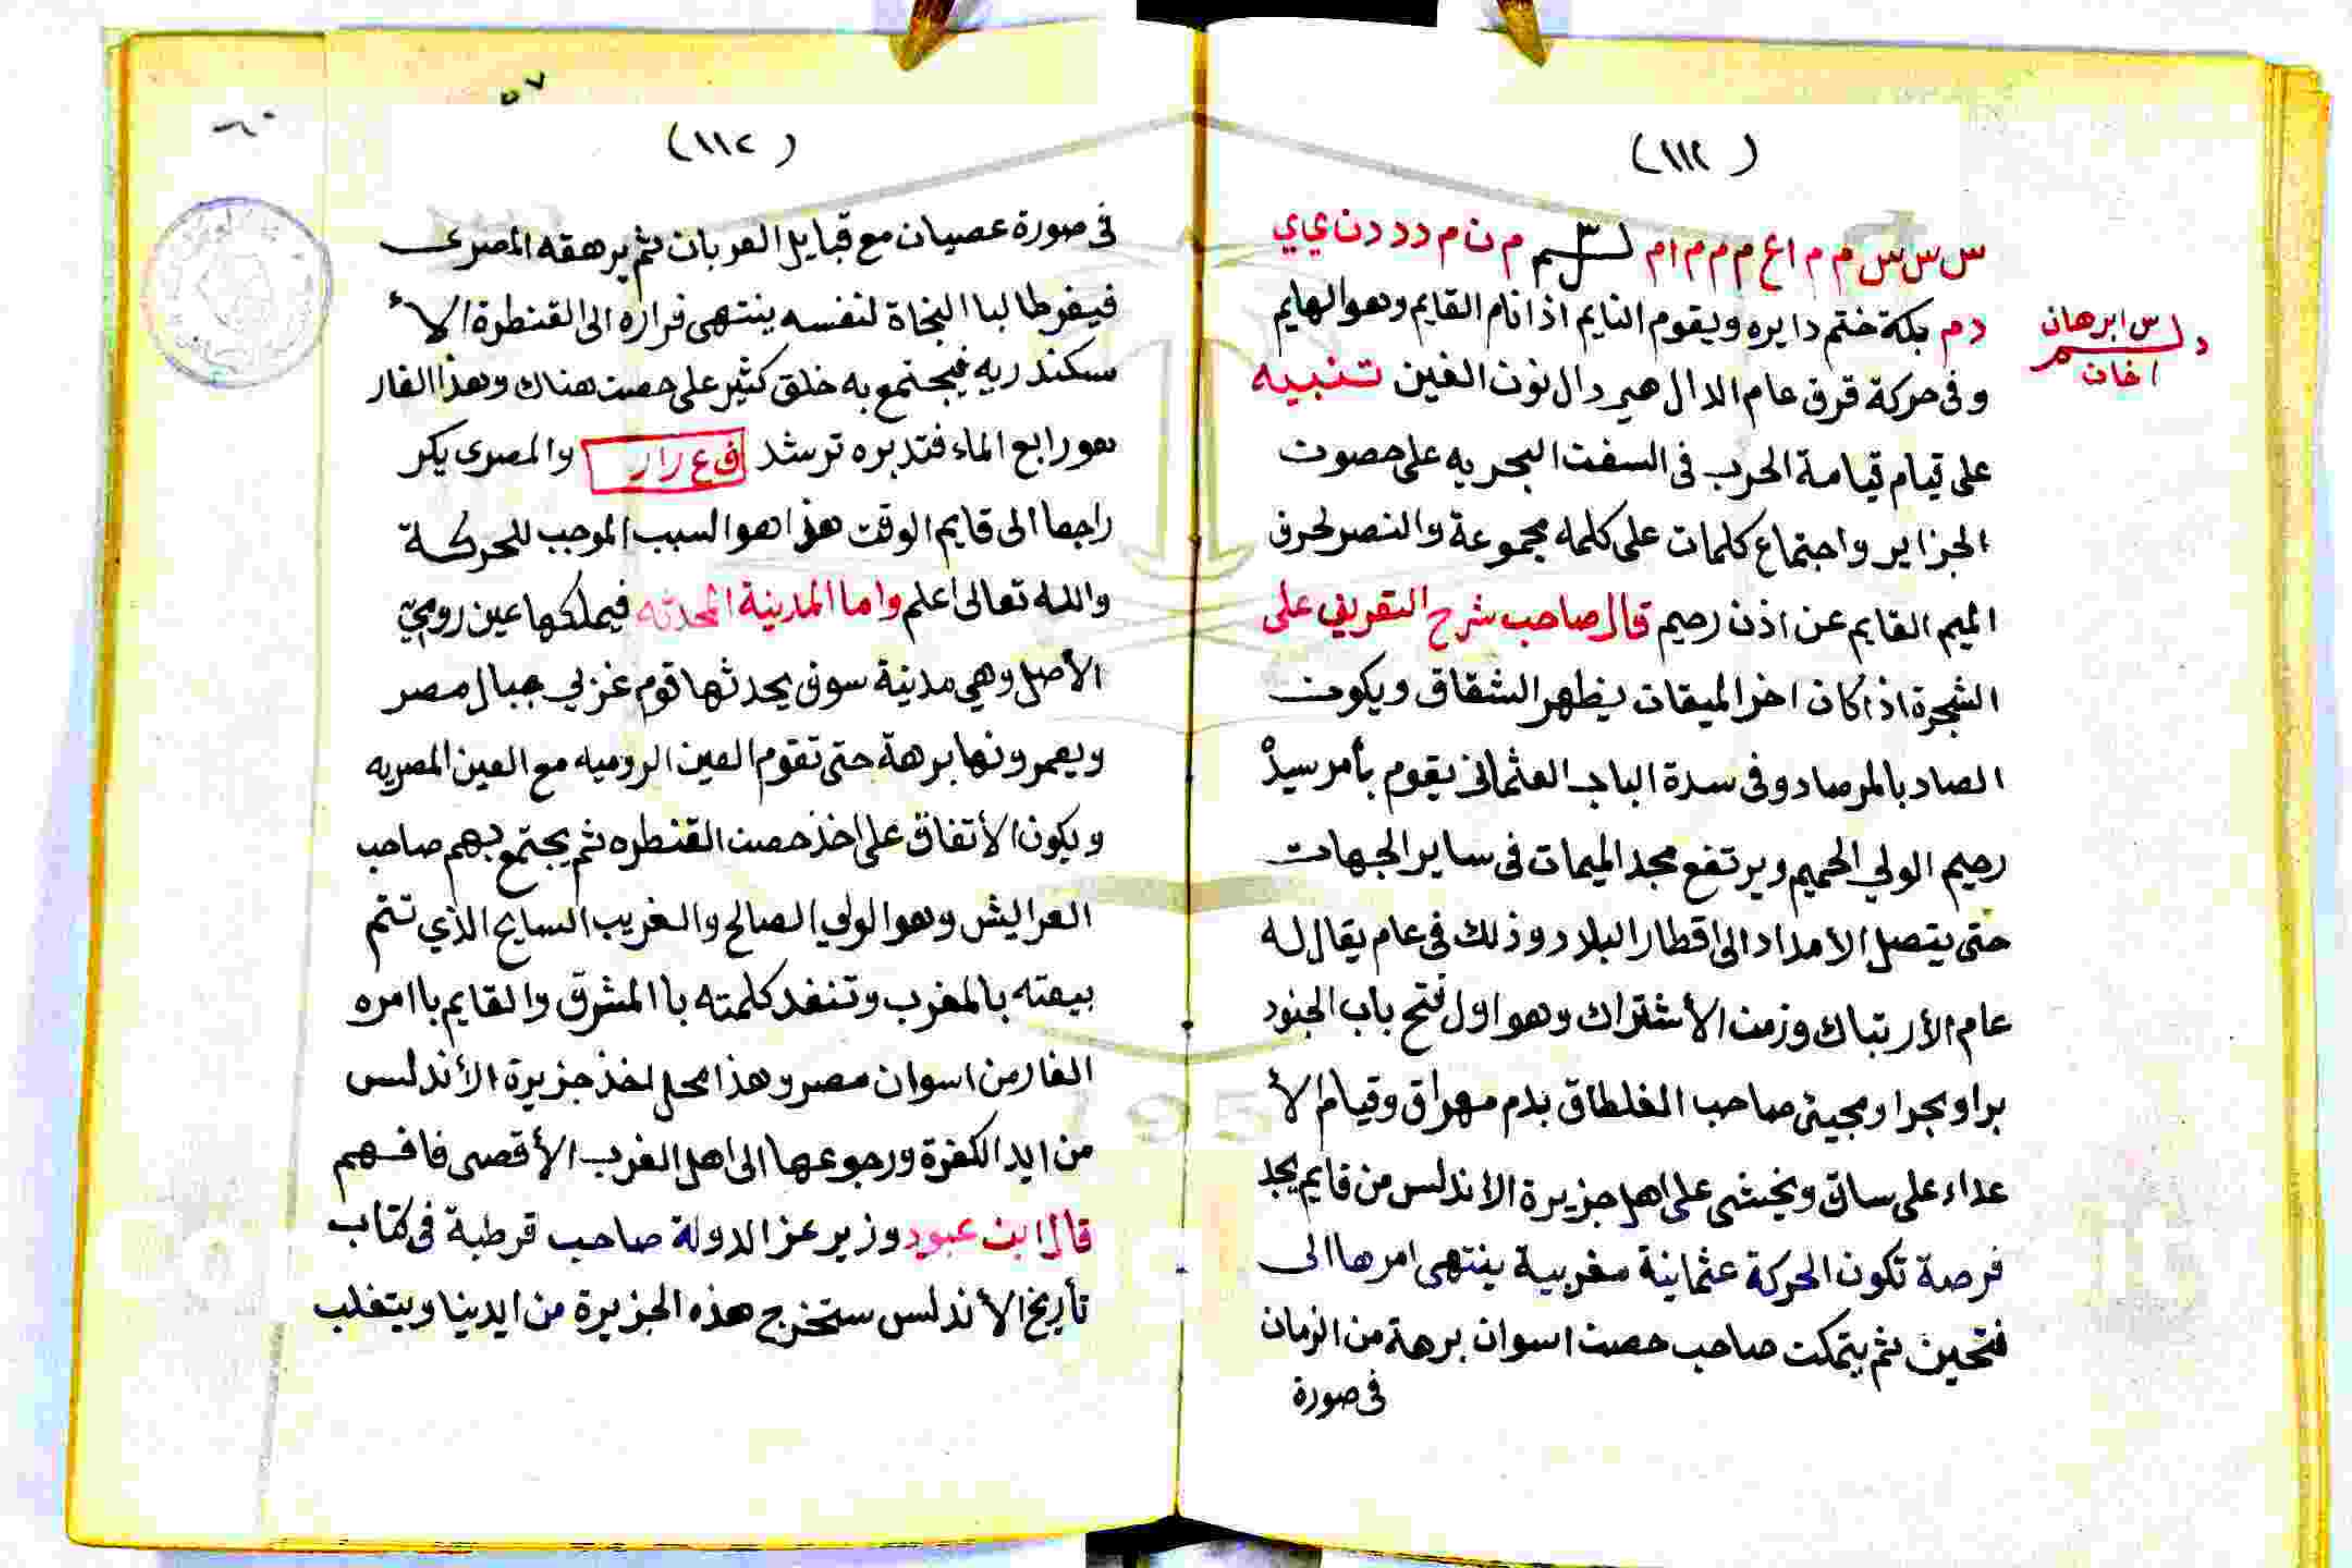 (١١٢)
س س س س م م ا ع م م م م ا م م ن م د د د ن ي ي ي
د م بكة ختم دايره ويقوم النايم اذا نام القايم وهو الهايم
س ابرهان
اخان
وفى حركة قرق عام الدال هجر دال نون الغين تنبيه
على قيام قيامة الحرب فى السفن البحريه على حصون
الجزاير واجتماع كلمات على كلمه مجموعة والنصر لحرف
الميم القايم عن اذن رحيم قال صاحب شرح التقريني على
الشجرة اذا كان اخر الميقات يظهر الشقاق ويكون
الصاد بالمرصاد وفى سدة الباب العثمانى يقوم بأمر سيد
رحيم الولي الحميم ويرتفع مجد الميمات فى ساير الجهات
حتى يتصل الامداد الى اقطار البلاد وذلك فى عام يقال له
عام الأرتباك وزمن الأشتراك وهو اول فتح باب الجنود
برا وبحرا ومجيئ صاحب الغلطاق بدم مهراق وقيام الأ
عداء على ساق ويخشى على اهل جزيرة الاندلس من قايم يجد
فرصة تكون الحركة عثمانية مغربية ينتهى امرها الى
فتحين ثم يتمكن صاحب حصن اسوان برهة من الزمان
فى صورة
٥٧
٦٠
(١١٢)
فى صورة عصيان مع قبايل العربان ثم يرهقه المصرى
فيفر طالبا النجاة لنفسه ينتهى فراره الى القنطرة الأ
سكندريه فيجتمع به خلق كثير على حصن هناك وهذا الفار
هو رابع الماء فتدبره ترشد ف ع ر ا ر والمصرى يكر
راجعا الى قايم الوقت هذا هو السبب الموجب للحركة
والله تعالى اعلم واما المدينة المحدثه فيملكها عين رومي
الأصل وهي مدينة سوف يحدثها قوم غزبي جبال مصر
ويعمرونها برهة حتى تقوم العين الروميه مع العين المصريه
ويكون الأتفاق على اخذ حصن القنطره ثم يجتمع بهم صاحب
العرايش وهو الولي الصالح والغريب السايح الذي تتم
بيعته بالمغرب وتنفد كلمته باالمشرق والقايم باامره
الفار من اسوان مصر وهذا محل اخذ جزيرة الأندلس
من ايد الكفرة ورجوعها الى اهل الغرب الأقصى فافهم
قال ابن عبود وزير عز الدولة صاحب قرطبة فى كتاب
تأريخ الأندلس ستخرج هذه الجزيرة من ايدينا ويتغلب